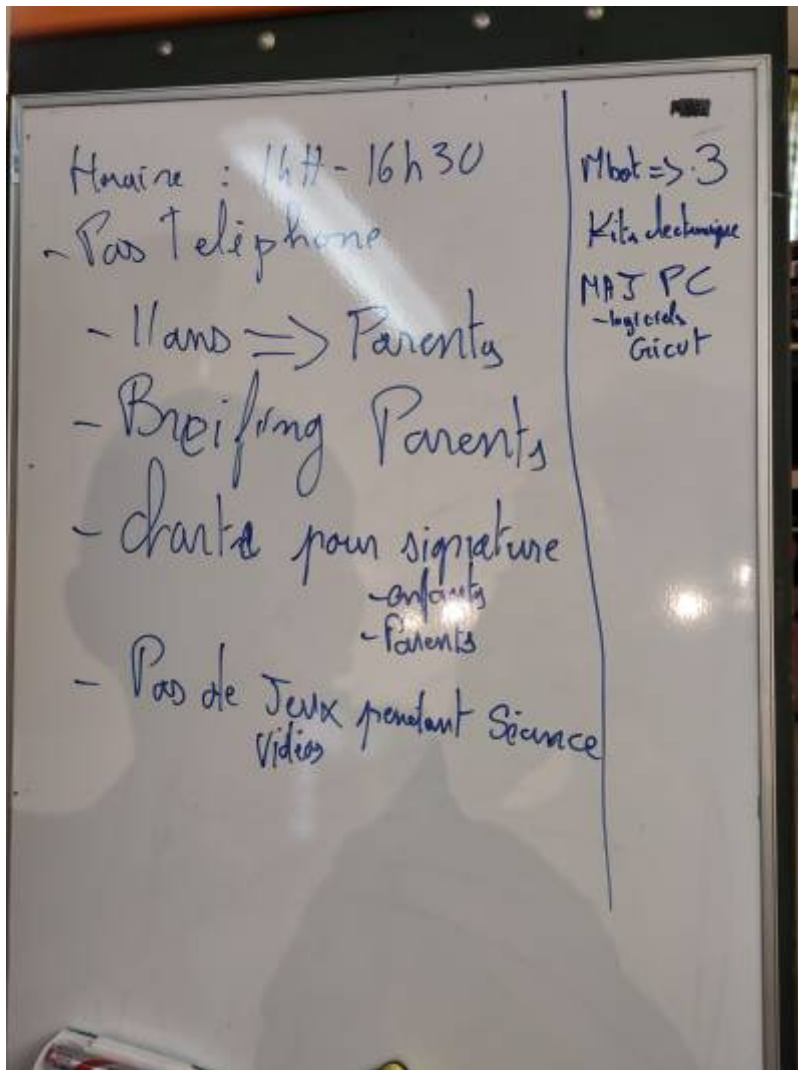 Horaire : 14H - 16h30
- Pas Teléphone
- 11ans => Parents
- Breifing Parents
- charte pour signature
- enfants
- Parents
- Pas de Jeux pendant Séance
Vidéos
Mbot => 3
Kits électronique
MAJ PC
- logiciels